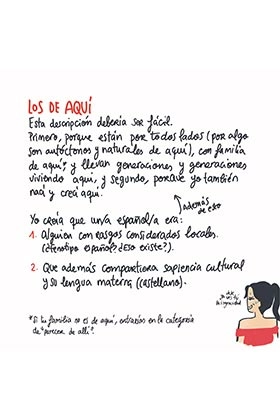 LOS DE AQUÍ
Esta descripción debería ser fácil.
Primero, porque están por todos lados (por algo
son autóctonos y naturales de aquí), con familia
de aquí*, y llevan generaciones y generaciones
viviendo aquí, y segundo, porque yo también
nací y crecí aquí.
Además de eso
Yo creía que un/a español/a era:
1. Alguien con rasgos considerados locales.
(¿fenotipo español? ¿eso existe?).
2. Que además compartiera sapiencia cultural
y su lengua materna (castellano).
*Si tu familia no es de aquí, entrarías en la categoría
de "parecer de allí".